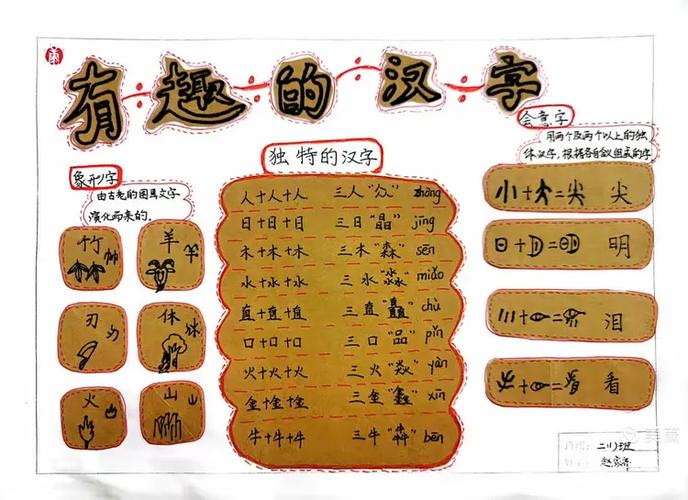 有趣的汉字
象形字
由古老的图画文字
演化而来的。
竹
羊
刃
休
火
山
独特的汉字
人+人+人 三人“众” zhòng
日+日+日 三日“晶” jīng
木+木+木 三木“森” sēn
水+水+水 三水“淼” miǎo
直+直+直 三直“矗” chù
口+口+口 三口“品” pǐn
火+火+火 三火“焱” yàn
金+金+金 三金“鑫” xīn
牛+牛+牛 三牛“犇” bēn
会意字
用两个及两个以上的独
体汉字，根据各自含义组成的字
小+大=尖 尖
明
泪
看
二(1)班
美篇